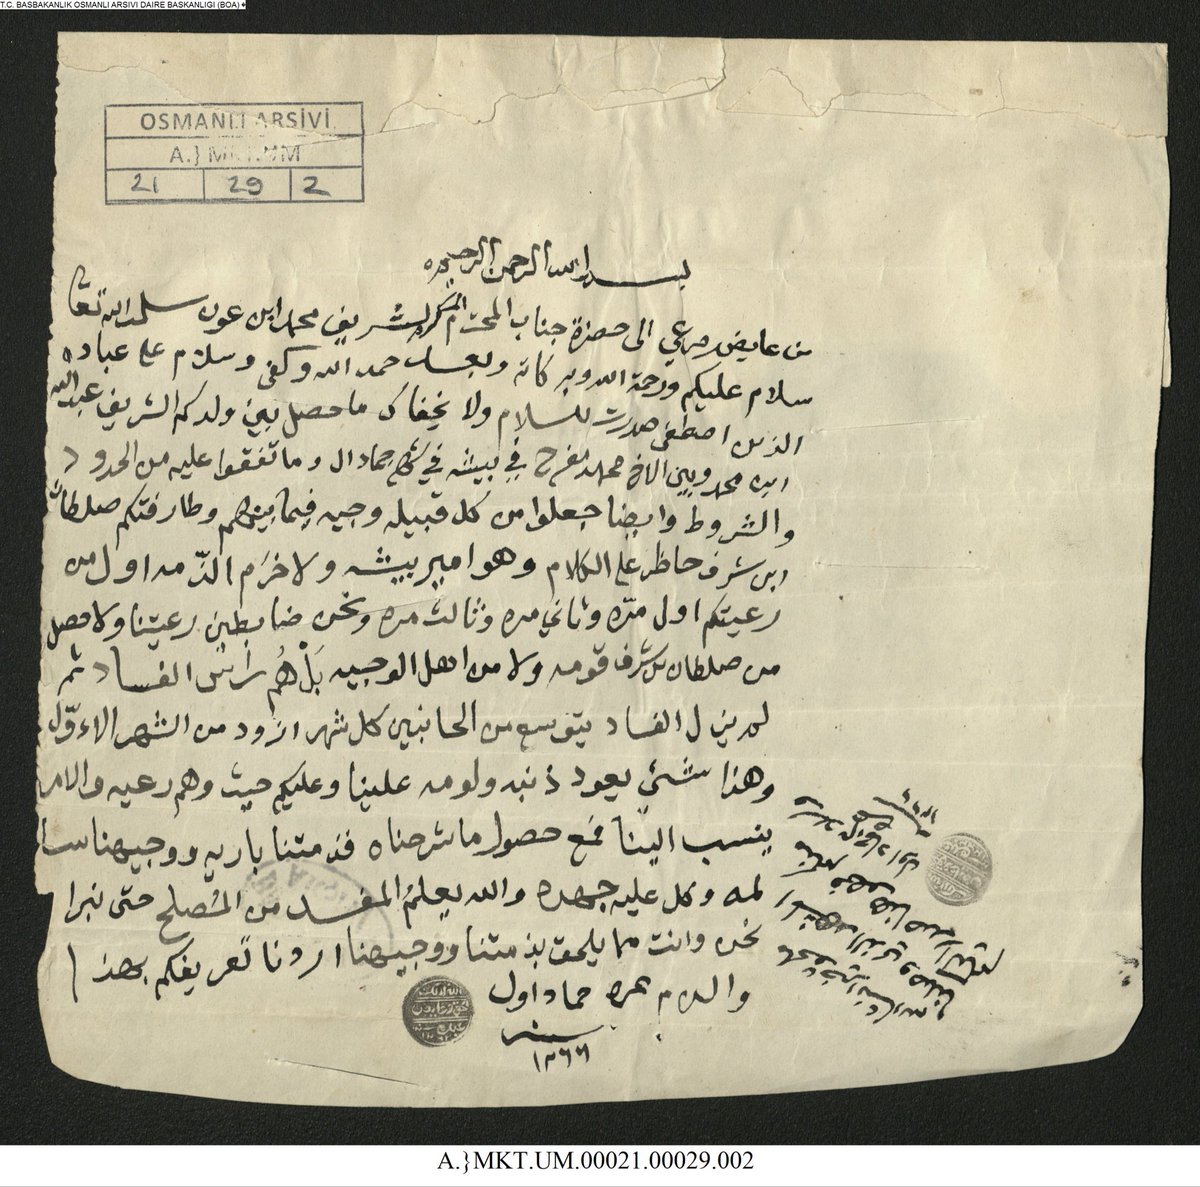 T.C. BASBAKANLIK OSMANLI ARSIVI DAIRE BASKANLIGI (BOA)
OSMANLI ARSİVİ
A.} MKT.UM
21 29 2
بسم الله الرحمن الرحيم
من عايض بن مرعي الى حضرة جناب المحترم المكرم الشريف محمد ابن عون سلمه الله تعا
سلام عليكم ورحمة الله وبركاته وبعد حمد الله وكفى وسلام على عباده
الذين اصطفى صدرت للسلام ولا يخفاك ما حصل بين ولدكم الشريف عبد الله
ابن محمد وبين الاخ محمد مفرح في بيشه في شهر جماد ال وما تفقوا عليه من الحدود
والشروط وايضا جعلوا من كل قبيله وجيه فيما بينهم وطارفتكم صلطان
ابن شرف حاظر على الكلام وهو امير بيشه ولا خرم الذمه اول من
رعيتكم اول مره وثاني مره وثالث مره ونحن ضابطين رعيتنا ولا حصل
من صلطان بن شرف قومه ولا من اهل الوجيه بل هم راس الفساد ثم
لم يزل الفساد يتوسع من الجانبين كل شهر ازود من الشهر الاول
وهذا شئ يعود ذنبه ولومه علينا وعليكم حيث وهم رعيه والامر
ينسب الينا فمع حصول ما شرحناه فذمتنا باريه ووجيهنا سا
لمه وكل عليه جهده والله يعلم المفسد من المصلح حتى نبرا
نحن وانت مما يلحق بذمتنا ووجيهنا اردنا تعريفكم بهذا
والسلام جماد اول
سنه
١٢٦٦
A.}MKT.UM.00021.00029.002